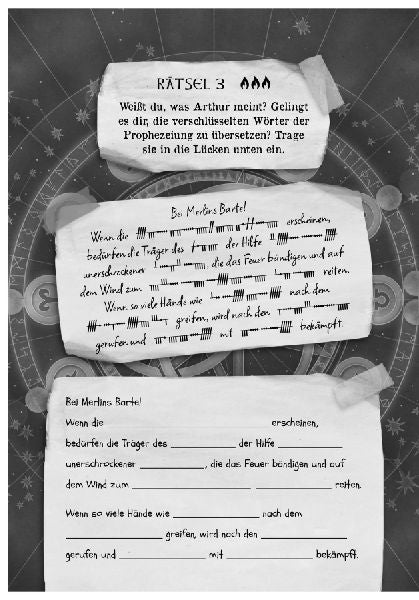 RÄTSEL 3
Weißt du, was Arthur meint? Gelingt
es dir, die verschlüsselten Wörter der
Prophezeiung zu übersetzen? Trage
sie in die Lücken unten ein.
Bei Merlins Barte!
Wenn die erscheinen,
bedürfen die Träger des der Hilfe
unerschrockener , die das Feuer bändigen und auf
dem Wind zum reiten.
Wenn so viele Hände wie nach dem
greifen, wird nach den
gerufen und mit bekämpft.
Bei Merlins Barte!
Wenn die ____ erscheinen,
bedürfen die Träger des ____ der Hilfe ____
unerschrockener ____, die das Feuer bändigen und auf
dem Wind zum ____ ____ reiten.
Wenn so viele Hände wie ____ nach dem
____ greifen, wird nach den ____
gerufen und ____ mit ____ bekämpft.